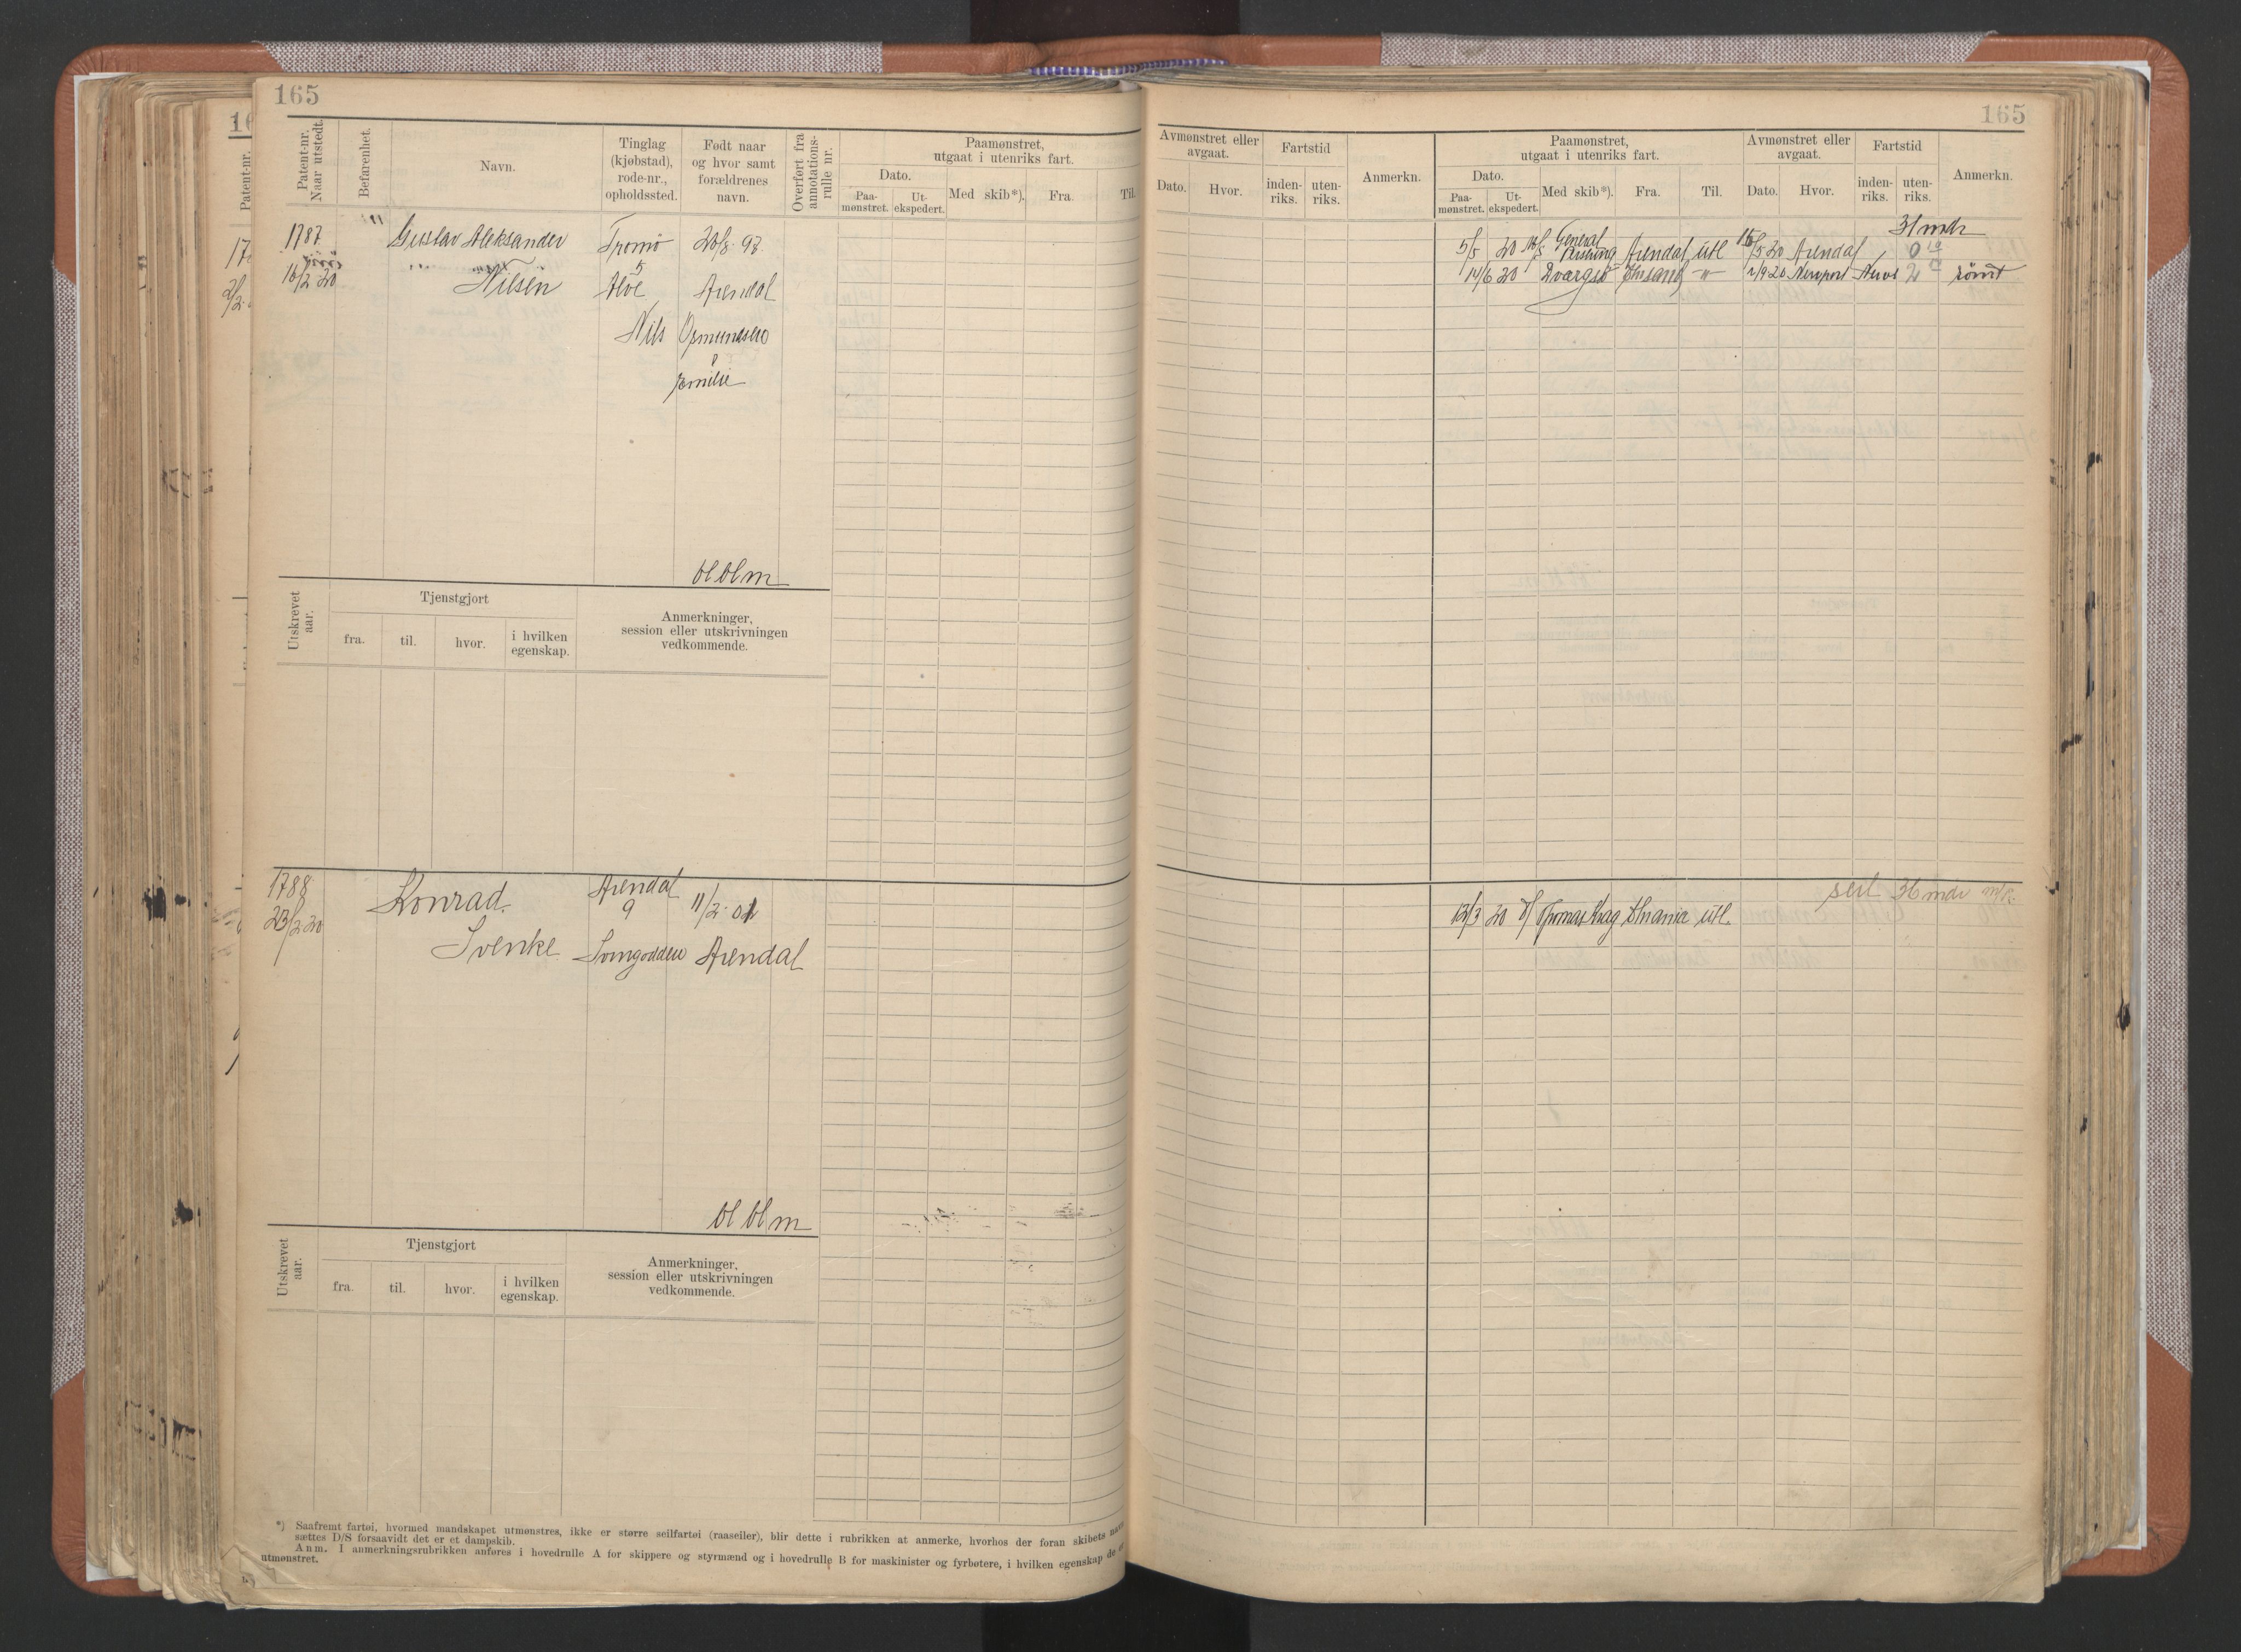 165
Patent-nr. Naar utstedt.
Befarenhet.
Navn.
Tinglag (kjøbstad), rode-nr., opholdssted.
Født naar og hvor samt forældrenes navn.
Overført fra annotations- rulle nr.
Paamønstret, utgaat i utenriks fart.
Dato.
Paa- mønstret.
Ut- ekspedert.
Med skib*).
Fra.
Til.
1787
16/2 20
"
Gustav Aleksander
Nilsen
Tromø
5
Alve
20/8 97
Arendal
Nils Osmundsen
Emilie
bl bl m
Utskrevet aar.
Tjenstgjort
fra.
til.
hvor.
i hvilken egenskap.
Anmerkninger, session eller utskrivningen vedkommende.
1788
23/2 20
Konrad
Svenke
Arendal
9
11/2 01
Arendal
bl bl m
Utskrevet aar.
Tjenstgjort
fra.
til.
hvor.
i hvilken egenskap.
Anmerkninger, session eller utskrivningen vedkommende.
*) Saafremt fartøi, hvormed mandskapet utmønstres, ikke er større seilfartøi (raaseiler), blir dette i rubrikken at anmerke, hvorhos der foran skibets navn
sættes D/S forsaavidt det er et dampskib.
Anm. I anmerkningsrubrikken anføres i hovedrulle A for skippere og styrmænd og i hovedrulle B for maskinister og fyrbøtere, i hvilken egenskap de er
utmønstret.
165
Avmønstret eller avgaat.
Dato.
Hvor.
Fartstid
inden- riks.
uten- riks.
Anmerkn.
Paamønstret, utgaat i utenriks fart.
Dato.
Paa- mønstret.
Ut- ekspedert.
Med skib*).
Fra.
Til.
Avmønstret eller avgaat.
Dato.
Hvor.
Fartstid
inden- riks.
uten- riks.
Anmerkn.
31 mdr
5/5 20 General Arendal utl 15/5 20 Arendal 0 10
14/6 20 -"- 2/9 20 Newport News 2 rømt
seil 36 mdr
12/3 20 Thomas Krag Chrania utl.